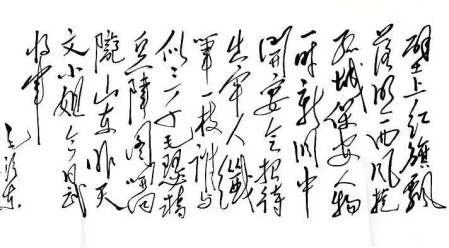 壁上红旗飘
落照西风
孤城保安人物
一时新洞中
開宴会招待
出牢人纖
筆一枝谁与
似三千毛瑟精
兵陣圖開向
隴山东昨天
文小姐今日武
将軍
毛泽东